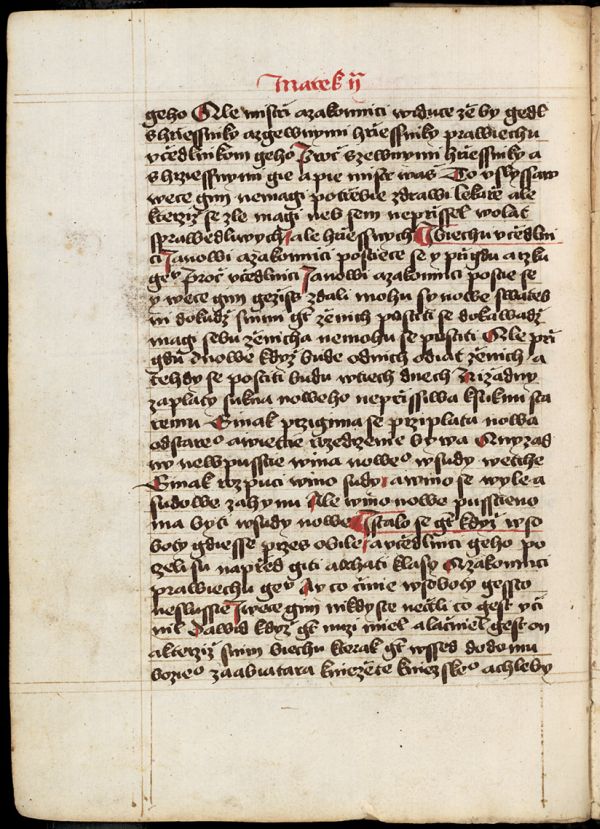 Marek ij
geho Ale mistri a zakonnici widuce ze by gedl
s hrziessniky a z gewnymi hrziessniky prawiechu
vczedlnikom geho Procz s zewnymi hrziessniky a
s hrziessnymi gie a pie mistr was To vslyssaw
wece gim nemagi potrzebie zdrawi lekarze ale
kterziz se zle magi neb sem neprzissel wolat
sprawedliwych ale hrziessnych Biechu vczedlni
ci Janowi a zakonnici postiece se y przigdu a rzku
geu Procz vczedlnici Janowi a zakonnici postie se
y wece gim gezis zdali mohu synowe swateb
ni dokudz s nimi gt zenich postiti se dokawadz
magi s sebu zenicha nemohu se postiti Ale przi
gdu dnowe kdyz bude od nich odiat zenich a
tehdy se postiti budu w tiech dnech Nizadny
zaplaty sukna noweho neprzissiwa k suknu sta
remu Ginak przigima se prziplata nowa
od stareo a wietssie rozedrzenie bywa A nizad
ny newpusstie wina noweo w sudy wetche
Ginak rozpuci wino sudy a wino se wyle a
sudowe zahynu Ale wino nowe pusstieno
ma byti w sudy nowe Jstalo se gt kdyz w so
boty gdiesse przes obile a vczedlnici geho po
czeli su naprzed giti a trhati klasy A zakonnici
prawiechu geu Ay co czinie w soboty gessto
neslussie J wece gim nikdy ste nectli co gest vczi
nil Dawid kdyz gt nuzi miel a laczniel gest on
a kterziz s nim biechu kterak gt wssed do domu
bozieo za abiatara kniezete kniezskeo a chleby